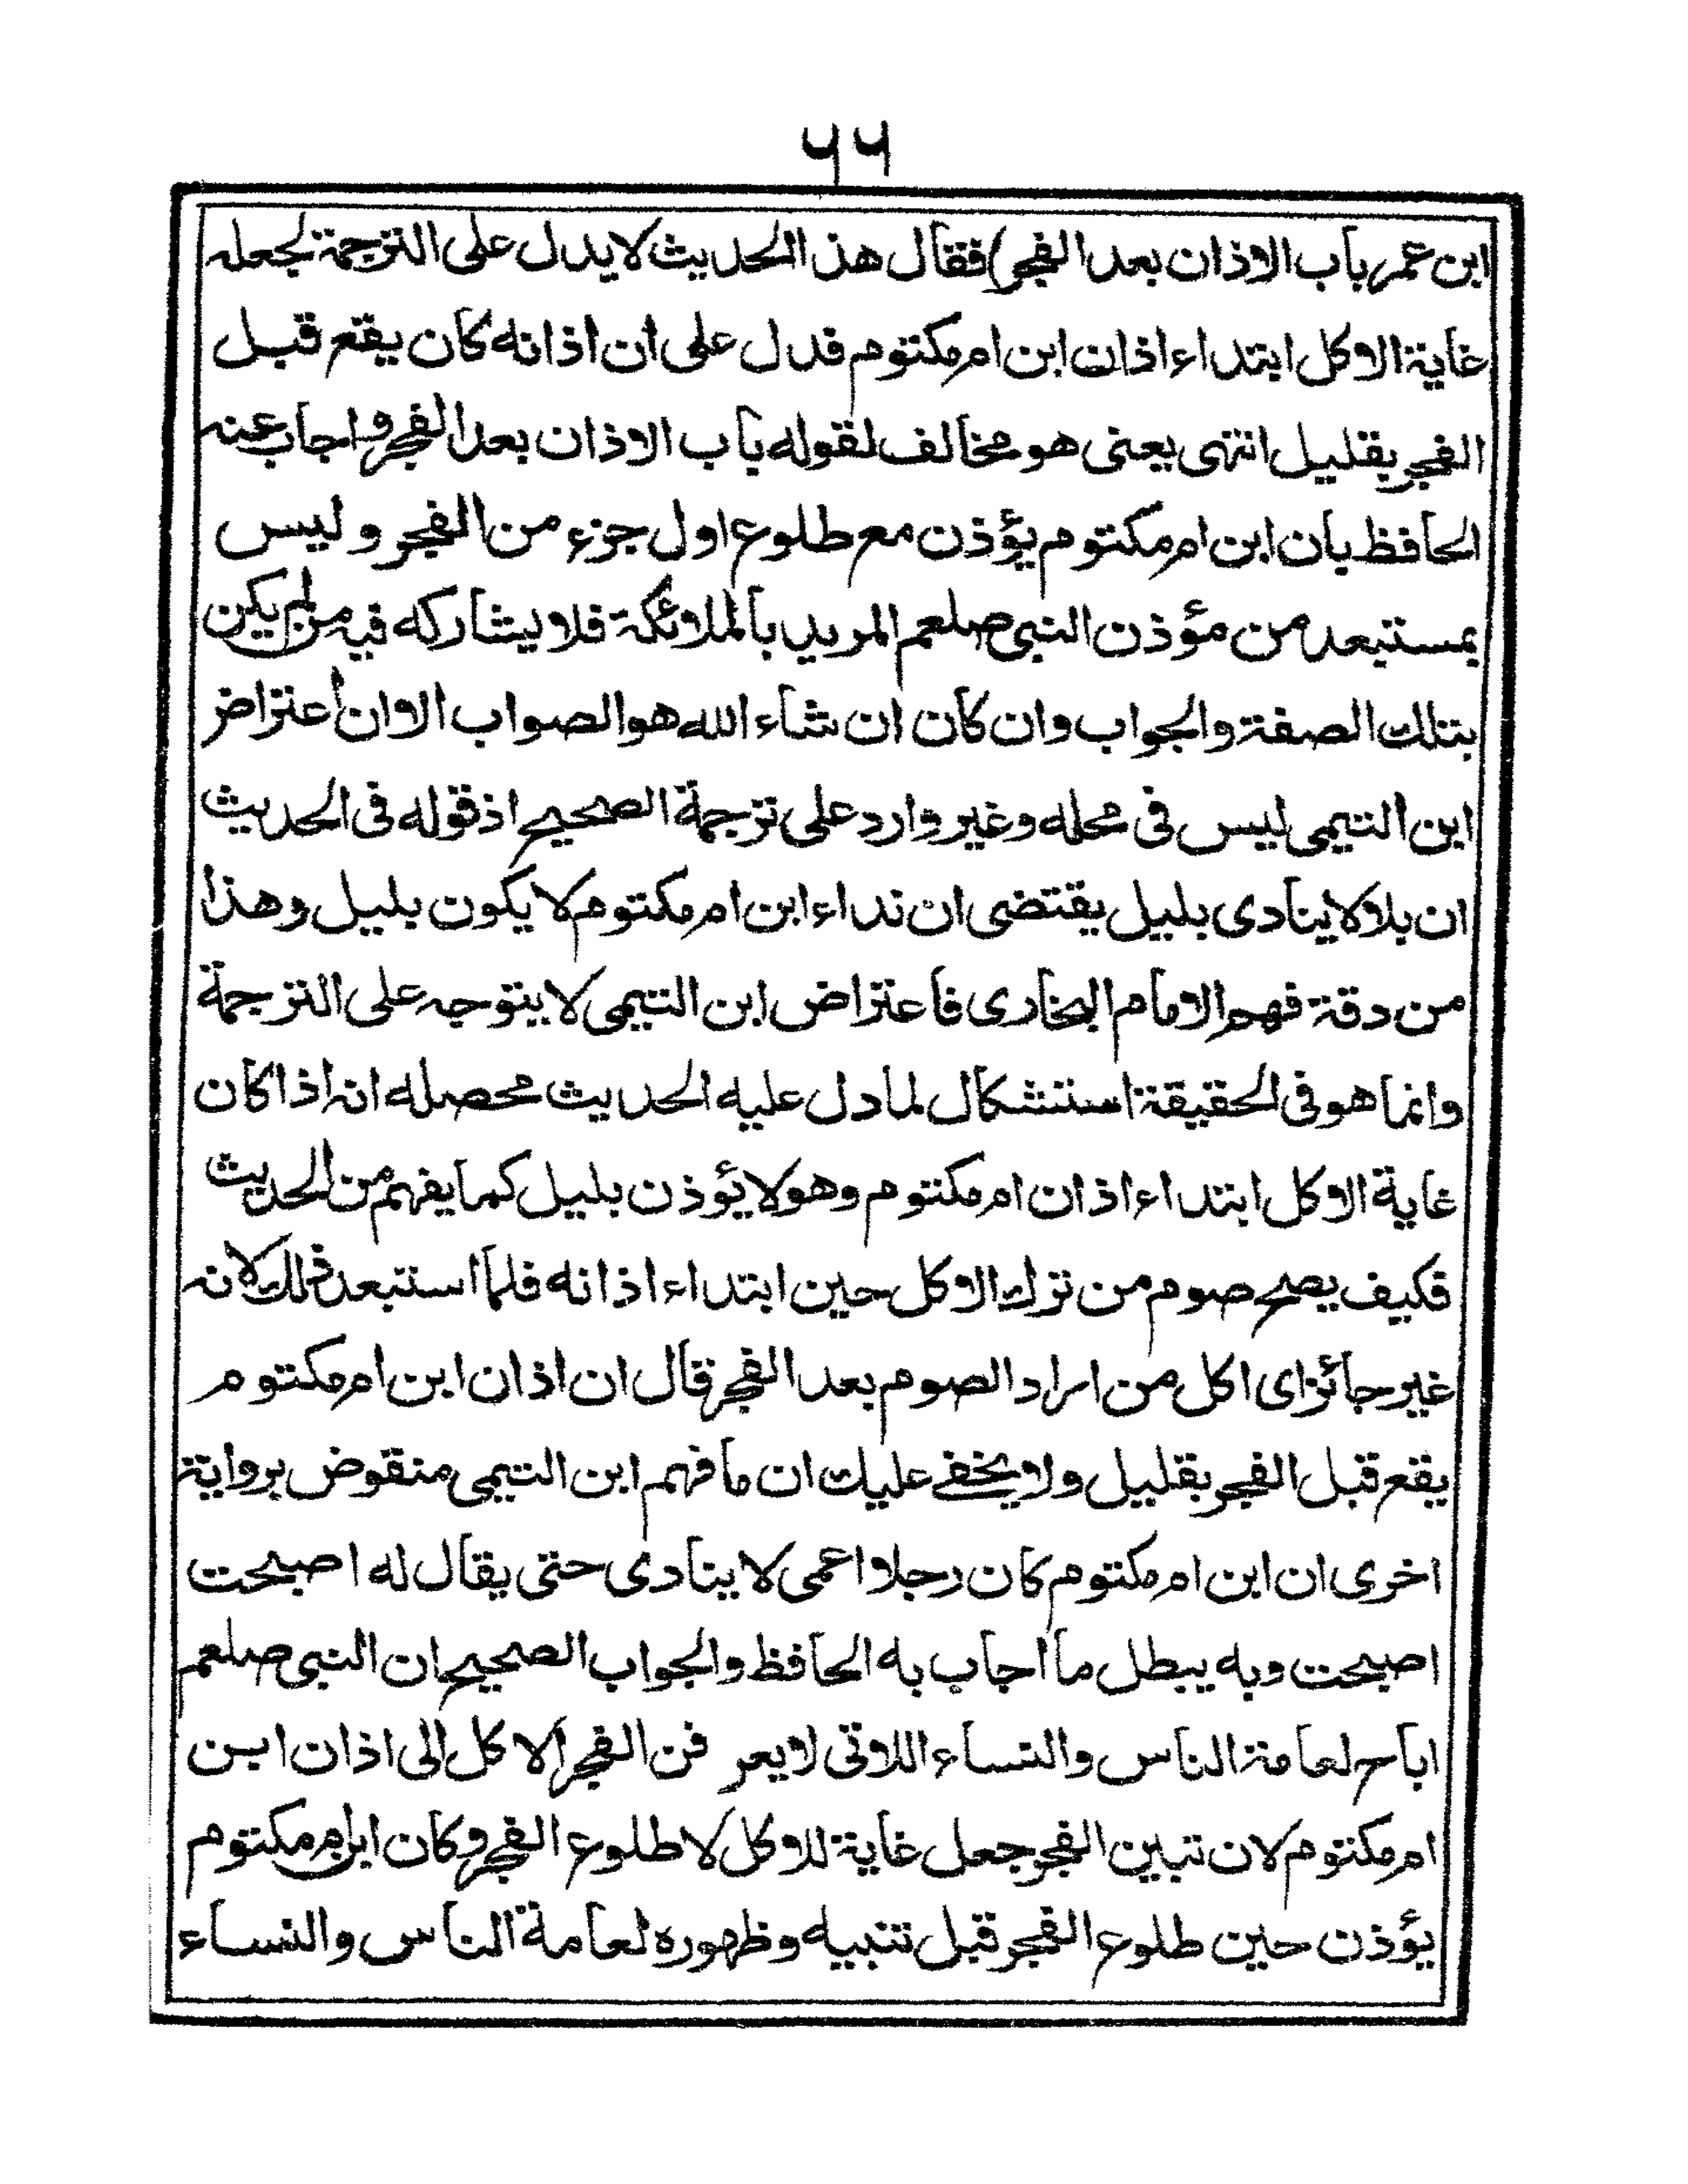 ۶۶
ابن عمر باب الاذان بعد الفجر) فقال هذا الحديث لا يدل على الترجمة لجعله
غاية الاكل ابتداء اذان ابن ام مكتوم فدل على ان اذانه كان يقع قبل
الفجر بقليل انتهى يعنى هو مخالف لقوله باب الاذان بعد الفجر واجاب عنه
الحافظ بان ابن ام مكتوم يؤذن مع طلوع اول جزء من الفجر و ليس
بمستبعد من مؤذن النبى صلعم المريد بالملائكة فلا يشاركه فيه من لم يكن
بتلك الصفة والجواب وان كان ان شاء الله هو الصواب الا ان اعتراض
ابن التيمى ليس فى محله وغير وارد على ترجمة الصحيح اذ قوله فى الحديث
ان بلالا ينادى بليل يقتضى ان نداء ابن ام مكتوم لا يكون بليل وهذا
من دقة فهم الامام البخارى فاعتراض ابن التيمى لا يتوجه على الترجمة
وانما هو فى الحقيقة استشكال لما دل عليه الحديث محصله انه اذا كان
غاية الاكل ابتداء اذان ام مكتوم وهو لا يؤذن بليل كما يفهم من الحديث
فكيف يصح صوم من ترك الاكل حين ابتداء اذانه فلما استبعد ذلك لانه
غير جائز اى اكل من اراد الصوم بعد الفجر قال ان اذان ابن ام مكتوم
يقع قبل الفجر بقليل ولا يخفے عليك ان ما فهم ابن التيمى منقوض برواية
اخرى ان ابن ام مكتوم كان رجلا اعمى لا ينادى حتى يقال له اصبحت
اصبحت وبه يبطل ما اجاب به الحافظ والجواب الصحيح ان النبى صلعم
اباح لعامة الناس والنساء اللاتى لا يعر فن الفجر الاكل الى اذان ابن
ام مكتوم لان تبين الفجر جعل غاية للاكل لا طلوع الفجر وكان ابن ام مكتوم
يؤذن حين طلوع الفجر قبل تنبيه وظهوره لعامة الناس والنساء